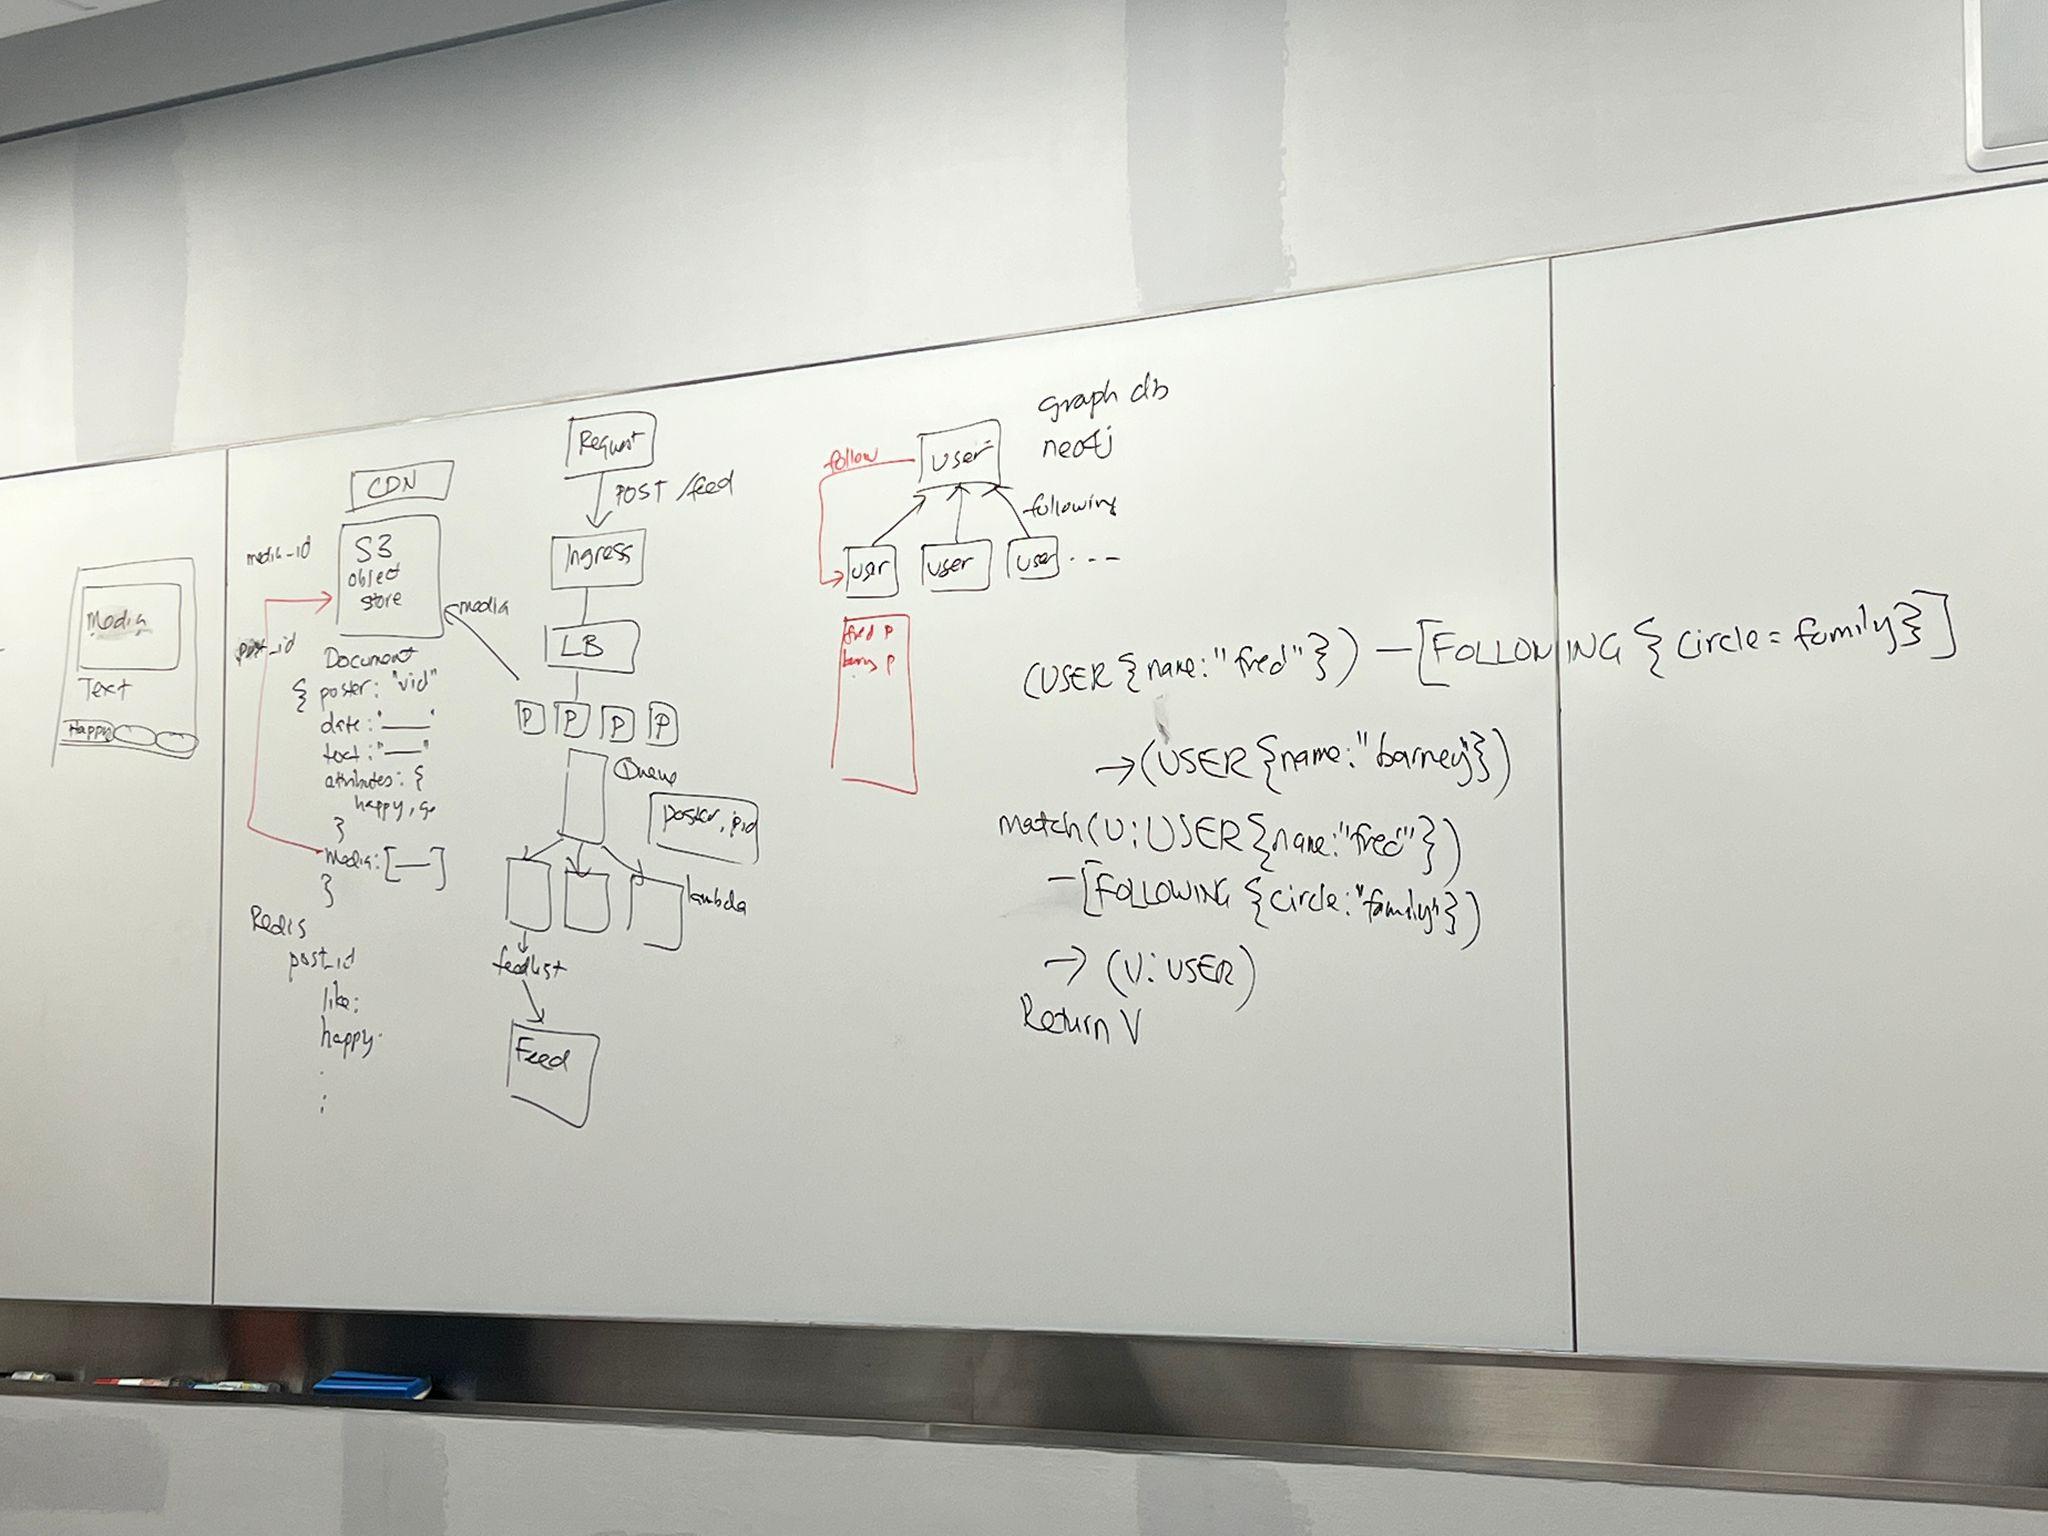 Media
Text
Happy
CDN
media_id
S3
object
store
media
post_id
Document
{ poster: "vid"
date: "___"
text: "___"
attributes: {
happy,
}
Media: [___]
}
Redis
post_id
like:
happy:
:
Request
POST /feed
Ingress
LB
P P P P
Queue
poster, pid
lambda
feedlist
Feed
graph db
neo4j
follow
user
following
user user user ---
fred P
barney P
(USER {name: "fred"}) — [FOLLOWING {circle = family}]
→ (USER {name: "barney"})
match (U: USER {name: "fred"})
— [FOLLOWING {circle: "family"})
→ (V: USER)
Return V